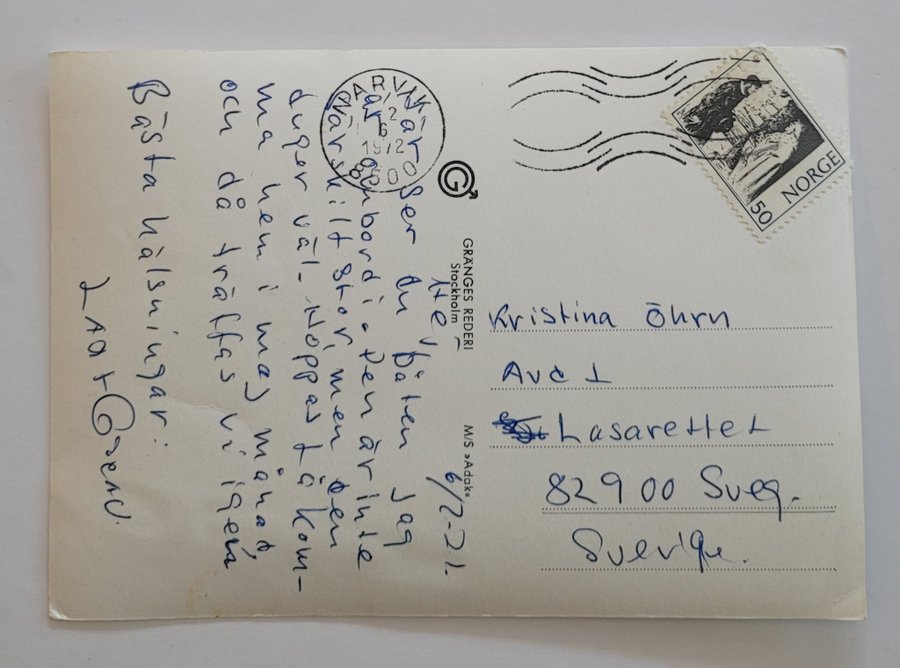 Hej
Här ser du båten jag
är ombord i. Den är inte
särskilt stor men den
duger väl. Hoppas få kom-
ma hem i maj månad
och då träffas vi igen
Bästa hälsningar:
GRÄNGES REDERI
Stockholm
M/S »Adak«
NARVIK
1972
8500
NORGE
50
Kristina Öhrn
Avd 1
Lasarettet
82900 Sveg.
Sverige.